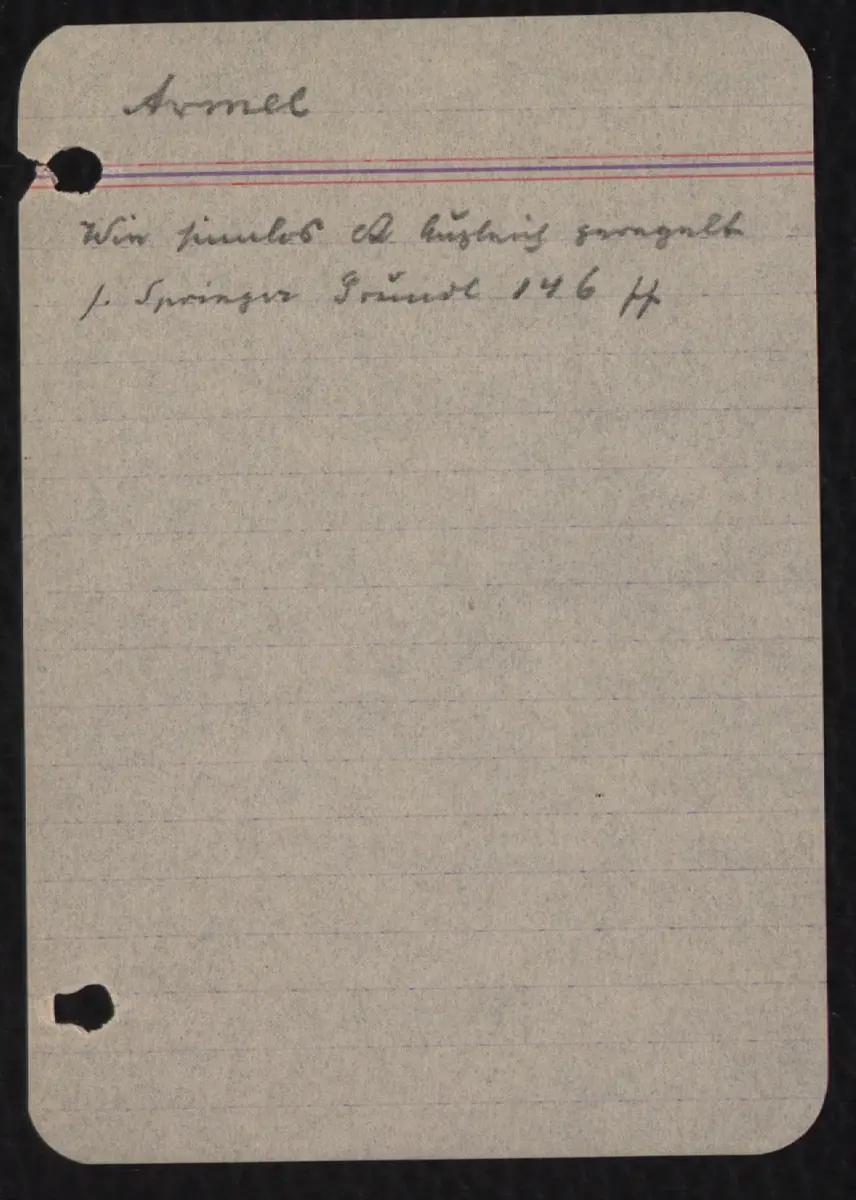 Armee
Wie sinnlos Ausgleich geregelt
s. Springer Grundl 146 ff